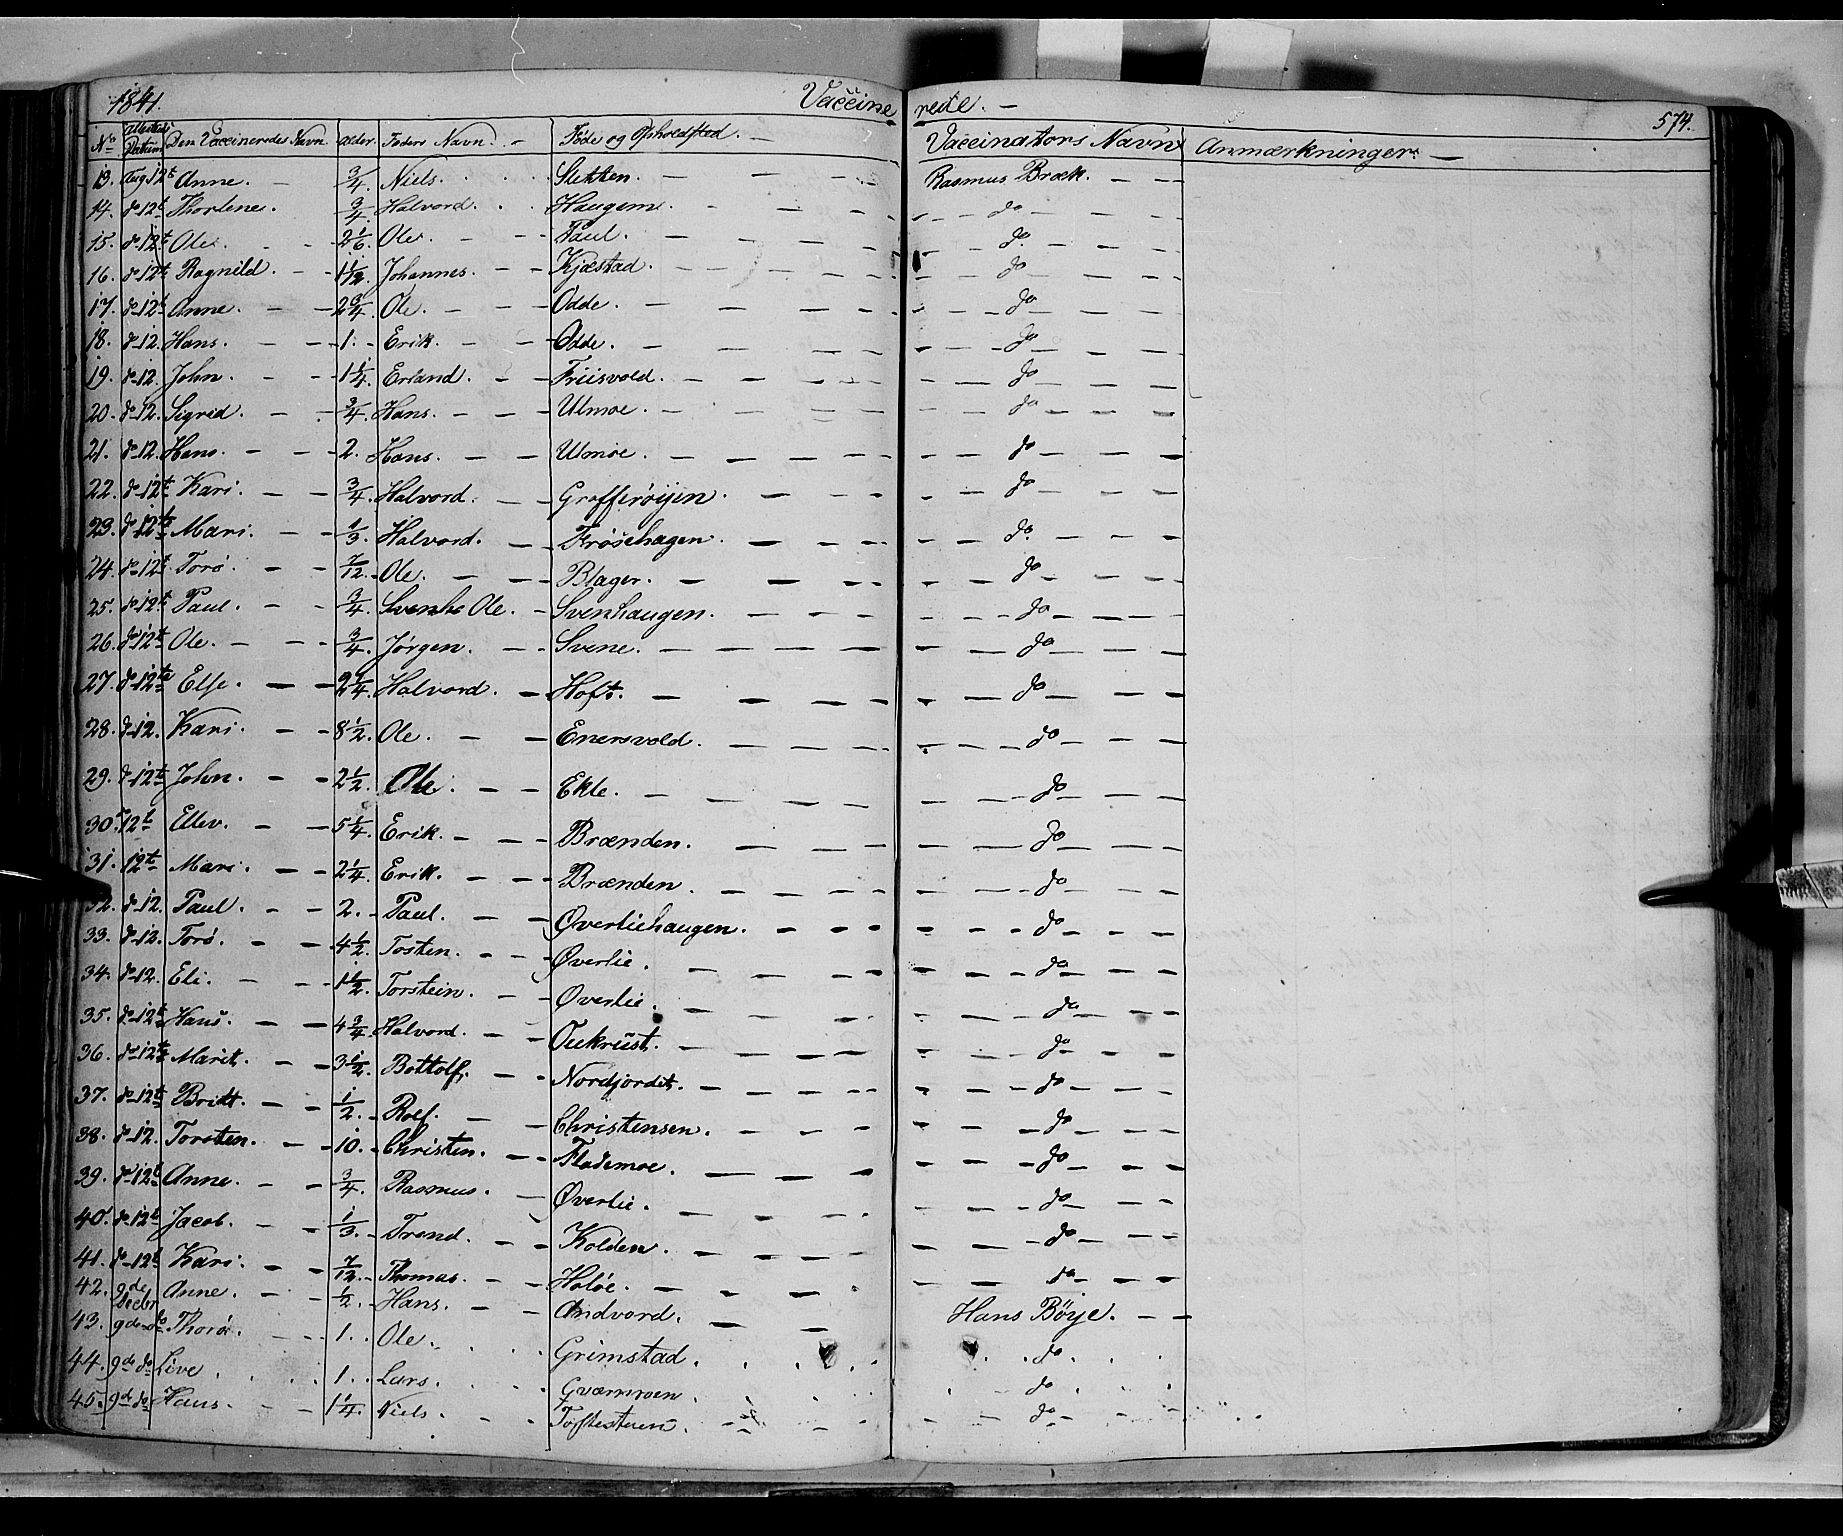 1841. Vaccinerede. — 574.
No Attestens Datum Den Vaccineredes Navn. Alder. Faders Navn. — Føde og Opholdsted. — Vaccinators Navn Anmærkninger. —
13. Aug 12t Anne. 3/4 Niels. Sletten. Rasmus Bræk.
14. do 12t Thorlene. 3/4 Halvord. Haugem. do
15. do 12t Ole. 2 1/6 Ole. Paul. do
16. do 12t Ragnild. 1 1/12 Johannes. Kjæstad. do
17. do 12t Anne. 2 3/4 Ole. Odde. do
18. do 12. Hans. 1. Erik. Odde. do
19. do 12. John. 1 1/4 Erland. Friisvold. do
20. do 12. Sigrid. 3/4 Hans. Ulmoe. do
21. do 12. Hans. 2. Hans. Ulmoe. do
22. do 12t Kari. 3/4 Halvord. Grafferøijen. do
23. do 12te Mari. 1/3 Halvord. Frøsehagen. do
24. do 12t Torø. 7/12 Ole. Blager. do
25. do 12t Paul. 3/4 Ole. Svenhaugen. do
26. do 12t Ole. 3/4 Jørgen. Svene. do
27. do 12te Else. 2 1/4 Halvord. Hoft. do
28. do 12. Kari. 8 1/2 Ole. Enersvold. do
29. do 12t John. 2 1/2 Ole. Ekle. do
30. 12t Ellev. 5 1/4 Erik. Brænden. do
31. 12t Mari. 2 1/4 Erik. Brænden. do
32. do 12. Paul. 2. Paul. Øverliehaugen. do
33. do 12. Torø. 4 1/2 Tosten. Øverlie. do
34. do 12. Eli. 1 1/2 Torstein. Øverlie. do
35. do 12t Hans. 4 3/4 Halvord. Oukrust. do
36. do 12te Marit. 3 1/2 Bottolf. Nordjordet. do
37. do 12t Britt. 1/2 Rolf. Christensen. do
38. do 12. Torsten. 10. Christen. Flademoe. do
39. do 12t Anne. 3/4 Rasmus. Øverlie. do
40. do 12t Jacob. 1/3 Trond. Kolden. do
41. do 12t Kari. 7/12 Thomas. Holøe. do
42. 9de Decbr Anne. 1/2 Hans. Andvord. Hans Börje.
43. 9de do Thorø. 1. Ole. Grimstad. do
44. 9de do Live 1. Lars. Gværnroen. do
45. 9de do Hans. 1 1/4 Niels. Toftestuen. do